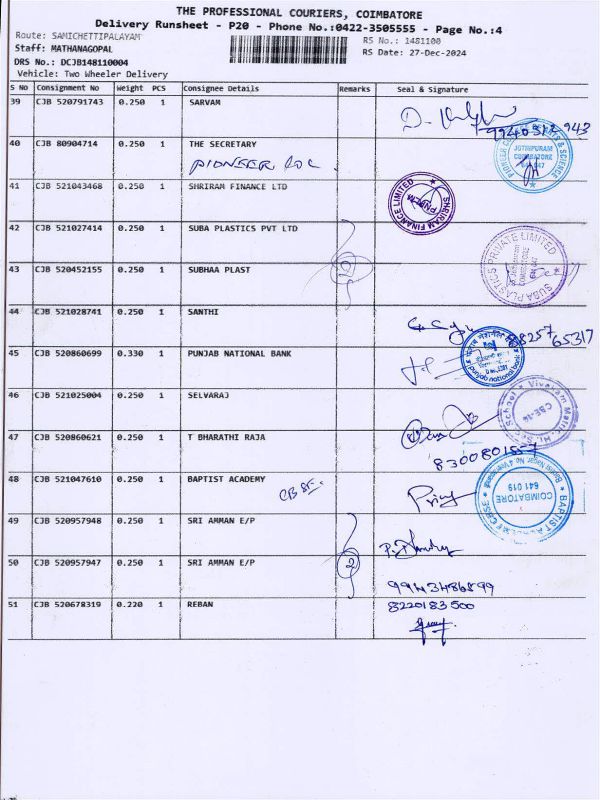 THE PROFESSIONAL COURIERS, COIMBATORE
Delivery Runsheet - P20 - Phone No.:0422-3505555 - Page No.:4
Route: SAMICHETTIPALAYAM
RS No.: 1481100
Staff: MATHANAGOPAL
RS Date: 27-Dec-2024
DRS No.: DCJB148110004
Vehicle: Two Wheeler Delivery
S No Consignment No Weight PCS Consignee Details Remarks Seal & Signature
39 CJB 520791743 0.250 1 SARVAM
9940512943
40 CJB 80904714 0.250 1 THE SECRETARY
PIONEER
JOTHIPURAM
COIMBATORE
41 CJB 521043468 0.250 1 SHRIRAM FINANCE LTD
SHRIRAM FINANCE LIMITED
42 CJB 521027414 0.250 1 SUBA PLASTICS PVT LTD
SUBA PLASTICS PRIVATE LIMITED
43 CJB 520452155 0.250 1 SUBHAA PLAST
44 CJB 521028741 0.250 1 SANTHI
65317
45 CJB 520860699 0.330 1 PUNJAB NATIONAL BANK
punjab national bank
46 CJB 521025004 0.250 1 SELVARAJ
47 CJB 520860621 0.250 1 T BHARATHI RAJA
8300801857
48 CJB 521047610 0.250 1 BAPTIST ACADEMY
CBSE
COIMBATORE
641 019
49 CJB 520957948 0.250 1 SRI AMMAN E/P
50 CJB 520957947 0.250 1 SRI AMMAN E/P
2
9943486899
51 CJB 520678319 0.220 1 REBAN
8220183500